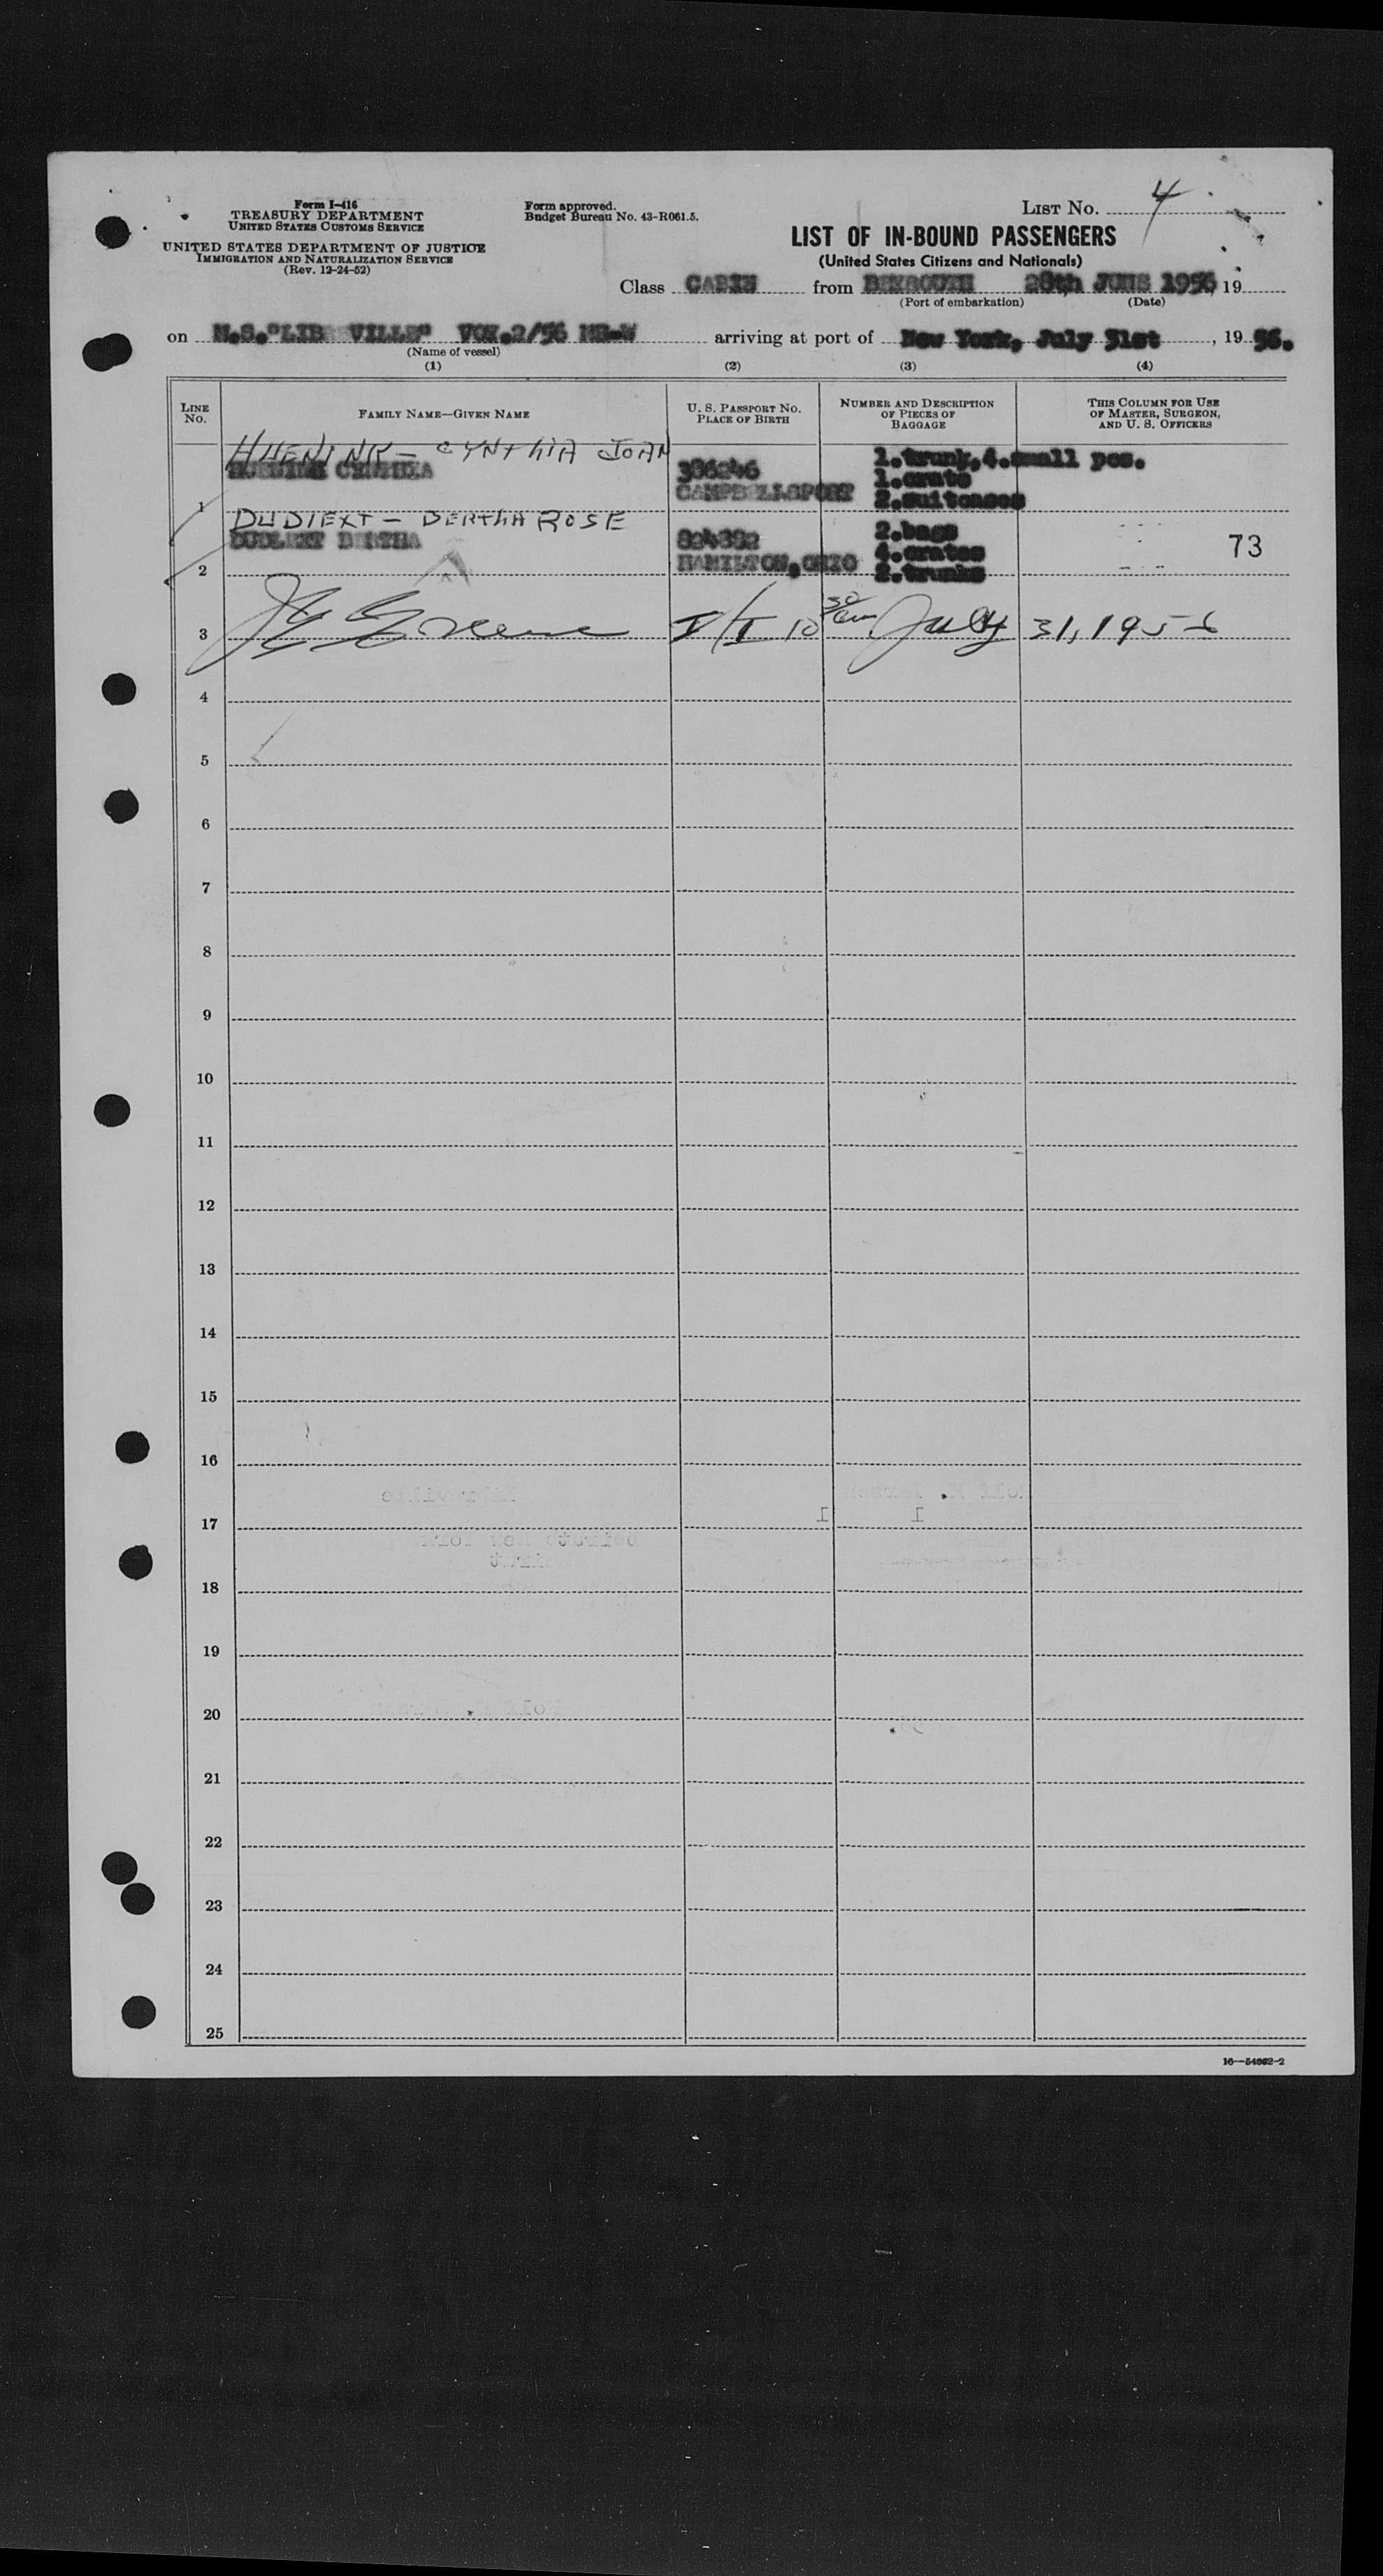 Form I-416
TREASURY DEPARTMENT
UNITED STATES CUSTOMS SERVICE
UNITED STATES DEPARTMENT OF JUSTICE
IMMIGRATION AND NATURALIZATION SERVICE
(Rev. 12-24-52)
Form approved.
Budget Bureau No. 43-R061.5.
LIST NO. 4
LIST OF IN-BOUND PASSENGERS
(United States Citizens and Nationals)
Class CABIN from BEYROUTH 28th JUNE 1956, 19
(Port of embarkation) (Date)
on M.S."LIB VILLE" VOY.2/56 arriving at port of New York, July 31st, 19 56.
(Name of vessel)
(1) (2) (3) (4)
LINE NO.
FAMILY NAME—GIVEN NAME
U. S. PASSPORT NO.
PLACE OF BIRTH
NUMBER AND DESCRIPTION
OF PIECES OF
BAGGAGE
THIS COLUMN FOR USE
OF MASTER, SURGEON,
AND U. S. OFFICERS
CYNTHIA JOAN
CYNTHIA 386246 1.trunk,4.small pcs.
1.crate
1 CAMPBELLSPORT 2.suitcases
DUDLEXT - BERTHA ROSE
BERTHA 824392 2.bags
4.crates 73
2 HAMILTON,OHIO 2.trunks
3 Greene I/I 10 30 am July 31, 1956
4
5
6
7
8
9
10
11
12
13
14
15
16
17
18
19
20
21
22
23
24
25